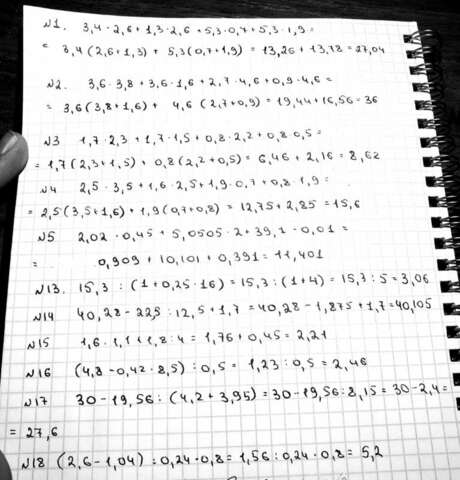 №1. 3,4 · 2,6 + 1,3 · 2,6 + 5,3 · 0,7 + 5,3 · 1,9 =
= 3,4 (2,6 + 1,3) + 5,3 (0,7 + 1,9) = 13,26 + 13,78 = 27,04
№2. 3,6 · 3,8 + 3,6 · 1,6 + 2,7 · 4,6 + 0,9 · 4,6 =
= 3,6 (3,8 + 1,6) + 4,6 (2,7 + 0,9) = 19,44 + 16,56 = 36
№3 1,7 · 2,3 + 1,7 · 1,5 + 0,8 · 2,2 + 0,8 · 0,5 =
= 1,7 (2,3 + 1,5) + 0,8 (2,2 + 0,5) = 6,46 + 2,16 = 8,62
№4 2,5 · 3,5 + 1,6 · 2,5 + 1,9 · 0,7 + 0,8 · 1,9 =
= 2,5 (3,5 + 1,6) + 1,9 (0,7 + 0,8) = 12,75 + 2,85 = 15,6
№5 2,02 · 0,45 + 5,0505 · 2 + 39,1 · 0,01 =
= 0,909 + 10,101 + 0,391 = 11,401
№13. 15,3 : (1 + 0,25 · 16) = 15,3 : (1 + 4) = 15,3 : 5 = 3,06
№14 40,28 - 22,5 : 12,5 + 1,7 = 40,28 - 1,875 + 1,7 = 40,105
№15 1,6 · 1,1 + 1,8 : 4 = 1,76 + 0,45 = 2,21
№16 (4,8 - 0,42 · 8,5) : 0,5 = 1,23 : 0,5 = 2,46
№17 30 - 19,56 : (4,2 + 3,95) = 30 - 19,56 : 8,15 = 30 - 2,4 =
= 27,6
№18 (2,6 - 1,04) : 0,24 · 0,8 = 1,56 : 0,24 · 0,8 = 5,2